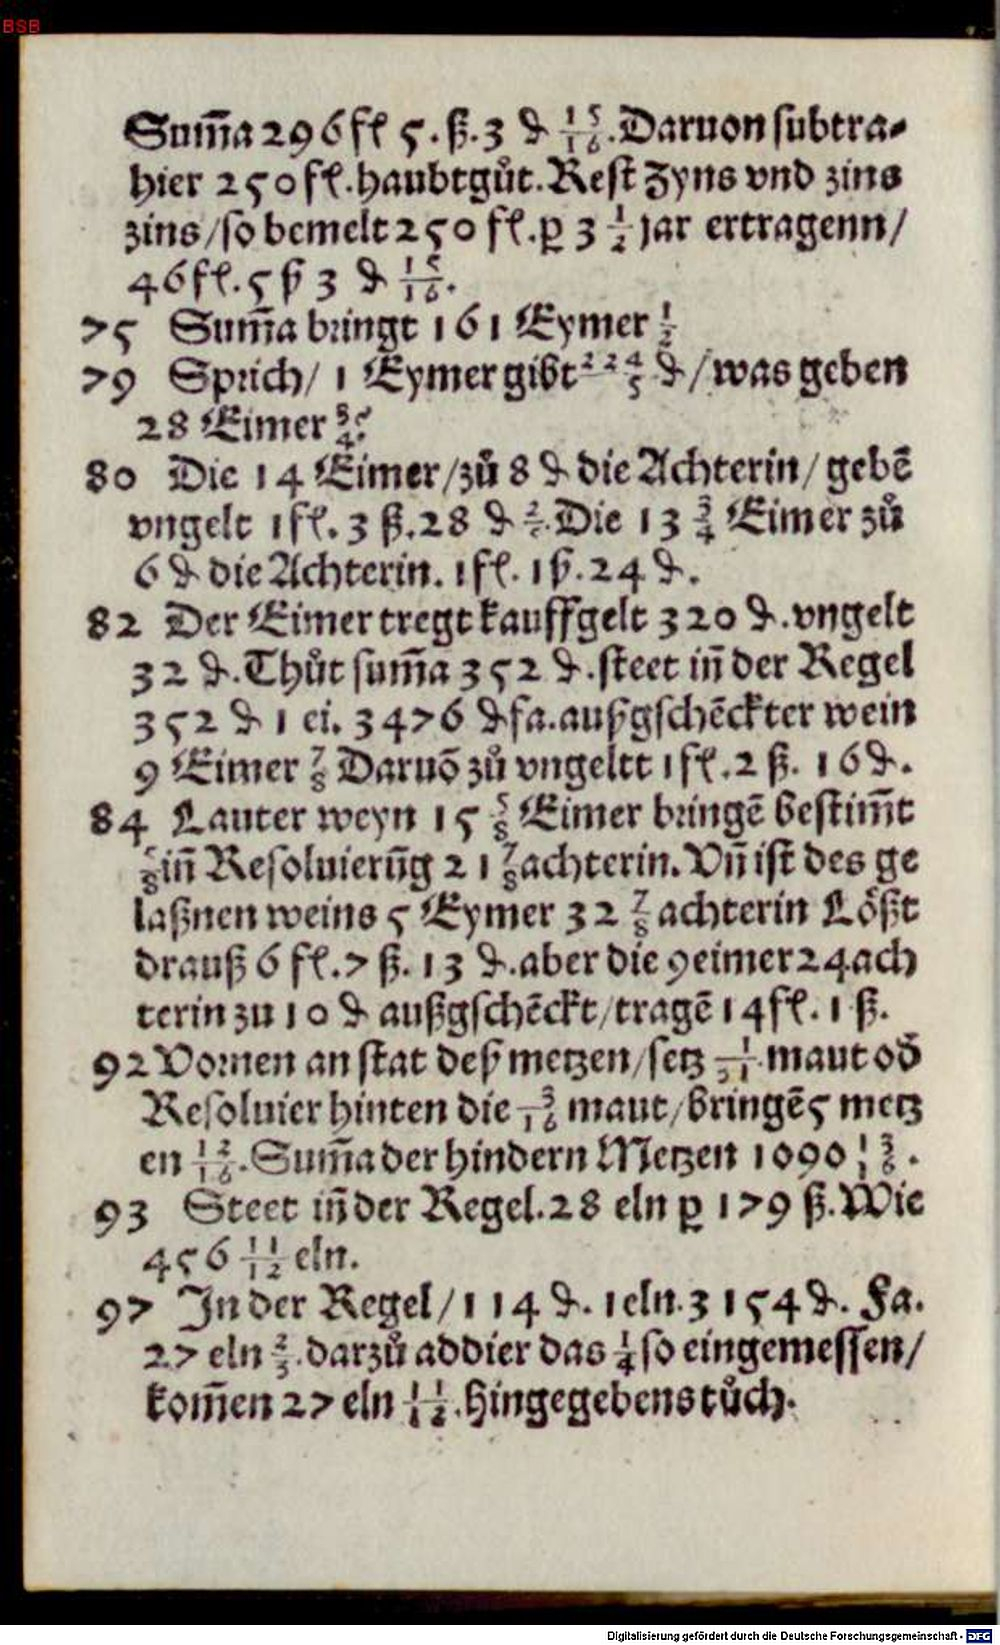 BSB
Sum̄a 296 fl 5. ß. 3 ₰ 15/16. Daruon subtra-
hier 250 fl. haubtgůt. Rest Zyns vnd zins
zins/so bemelt 250 fl. ꝑ 3 1/2 jar ertragenn/
46 fl. 5 ß 3 ₰ 15/16.
75 Sum̄a bringt 161 Eymer 1/2
79 Sprich/ 1 Eymer gibt 224/5 ₰/was geben
28 Eimer 3/4?
80 Die 14 Eimer/zů 8 ₰ die Achterin/ gebē
vngelt 1 fl. 3 ß. 28 ₰ 2/5. Die 13 3/4 Eimer zů
6 ₰ die Achterin. 1 fl. 1 ß. 24 ₰.
82 Der Eimer tregt kauffgelt 320 ₰. vngelt
32 ₰. Thůt sum̄a 352 ₰. steet in̄ der Regel
352 ₰ 1 ei. 3476 ₰ fa. außgschēckter wein
9 Eimer 7/8 Daruō zů vngeltt 1 fl. 2 ß. 16 ₰.
84 Lauter weyn 15 5/8 Eimer bringē bestim̄t
5/8 in̄ Resoluierūg 21 7/8 achterin. Vn̄ ist des ge
laßnen weins 5 Eymer 32 7/8 achterin Lößt
drauß 6 fl. 7 ß. 13 ₰. aber die 9 eimer 24 ach
terin zu 10 ₰ außgschēckt/tragē 14 fl. 1 ß.
92 Vornen an stat deß metzen/setz maut od̄
Resoluier hinten die 3/16 maut/bringē 5 metz
en 13/16. Sum̄a der hindern Metzen 1090 13/16.
93 Steet in̄ der Regel. 28 eln ꝑ 179 ß. Wie
456 11/12 eln.
97 In der Regel/114 ₰. 1 eln. 3154 ₰. Fa.
27 eln 2/3. darzů addier das 1/4 so eingemessen/
kom̄en 27 eln 11/12. hingegebens tůch.
Digitalisierung gefördert durch die Deutsche Forschungsgemeinschaft - DFG